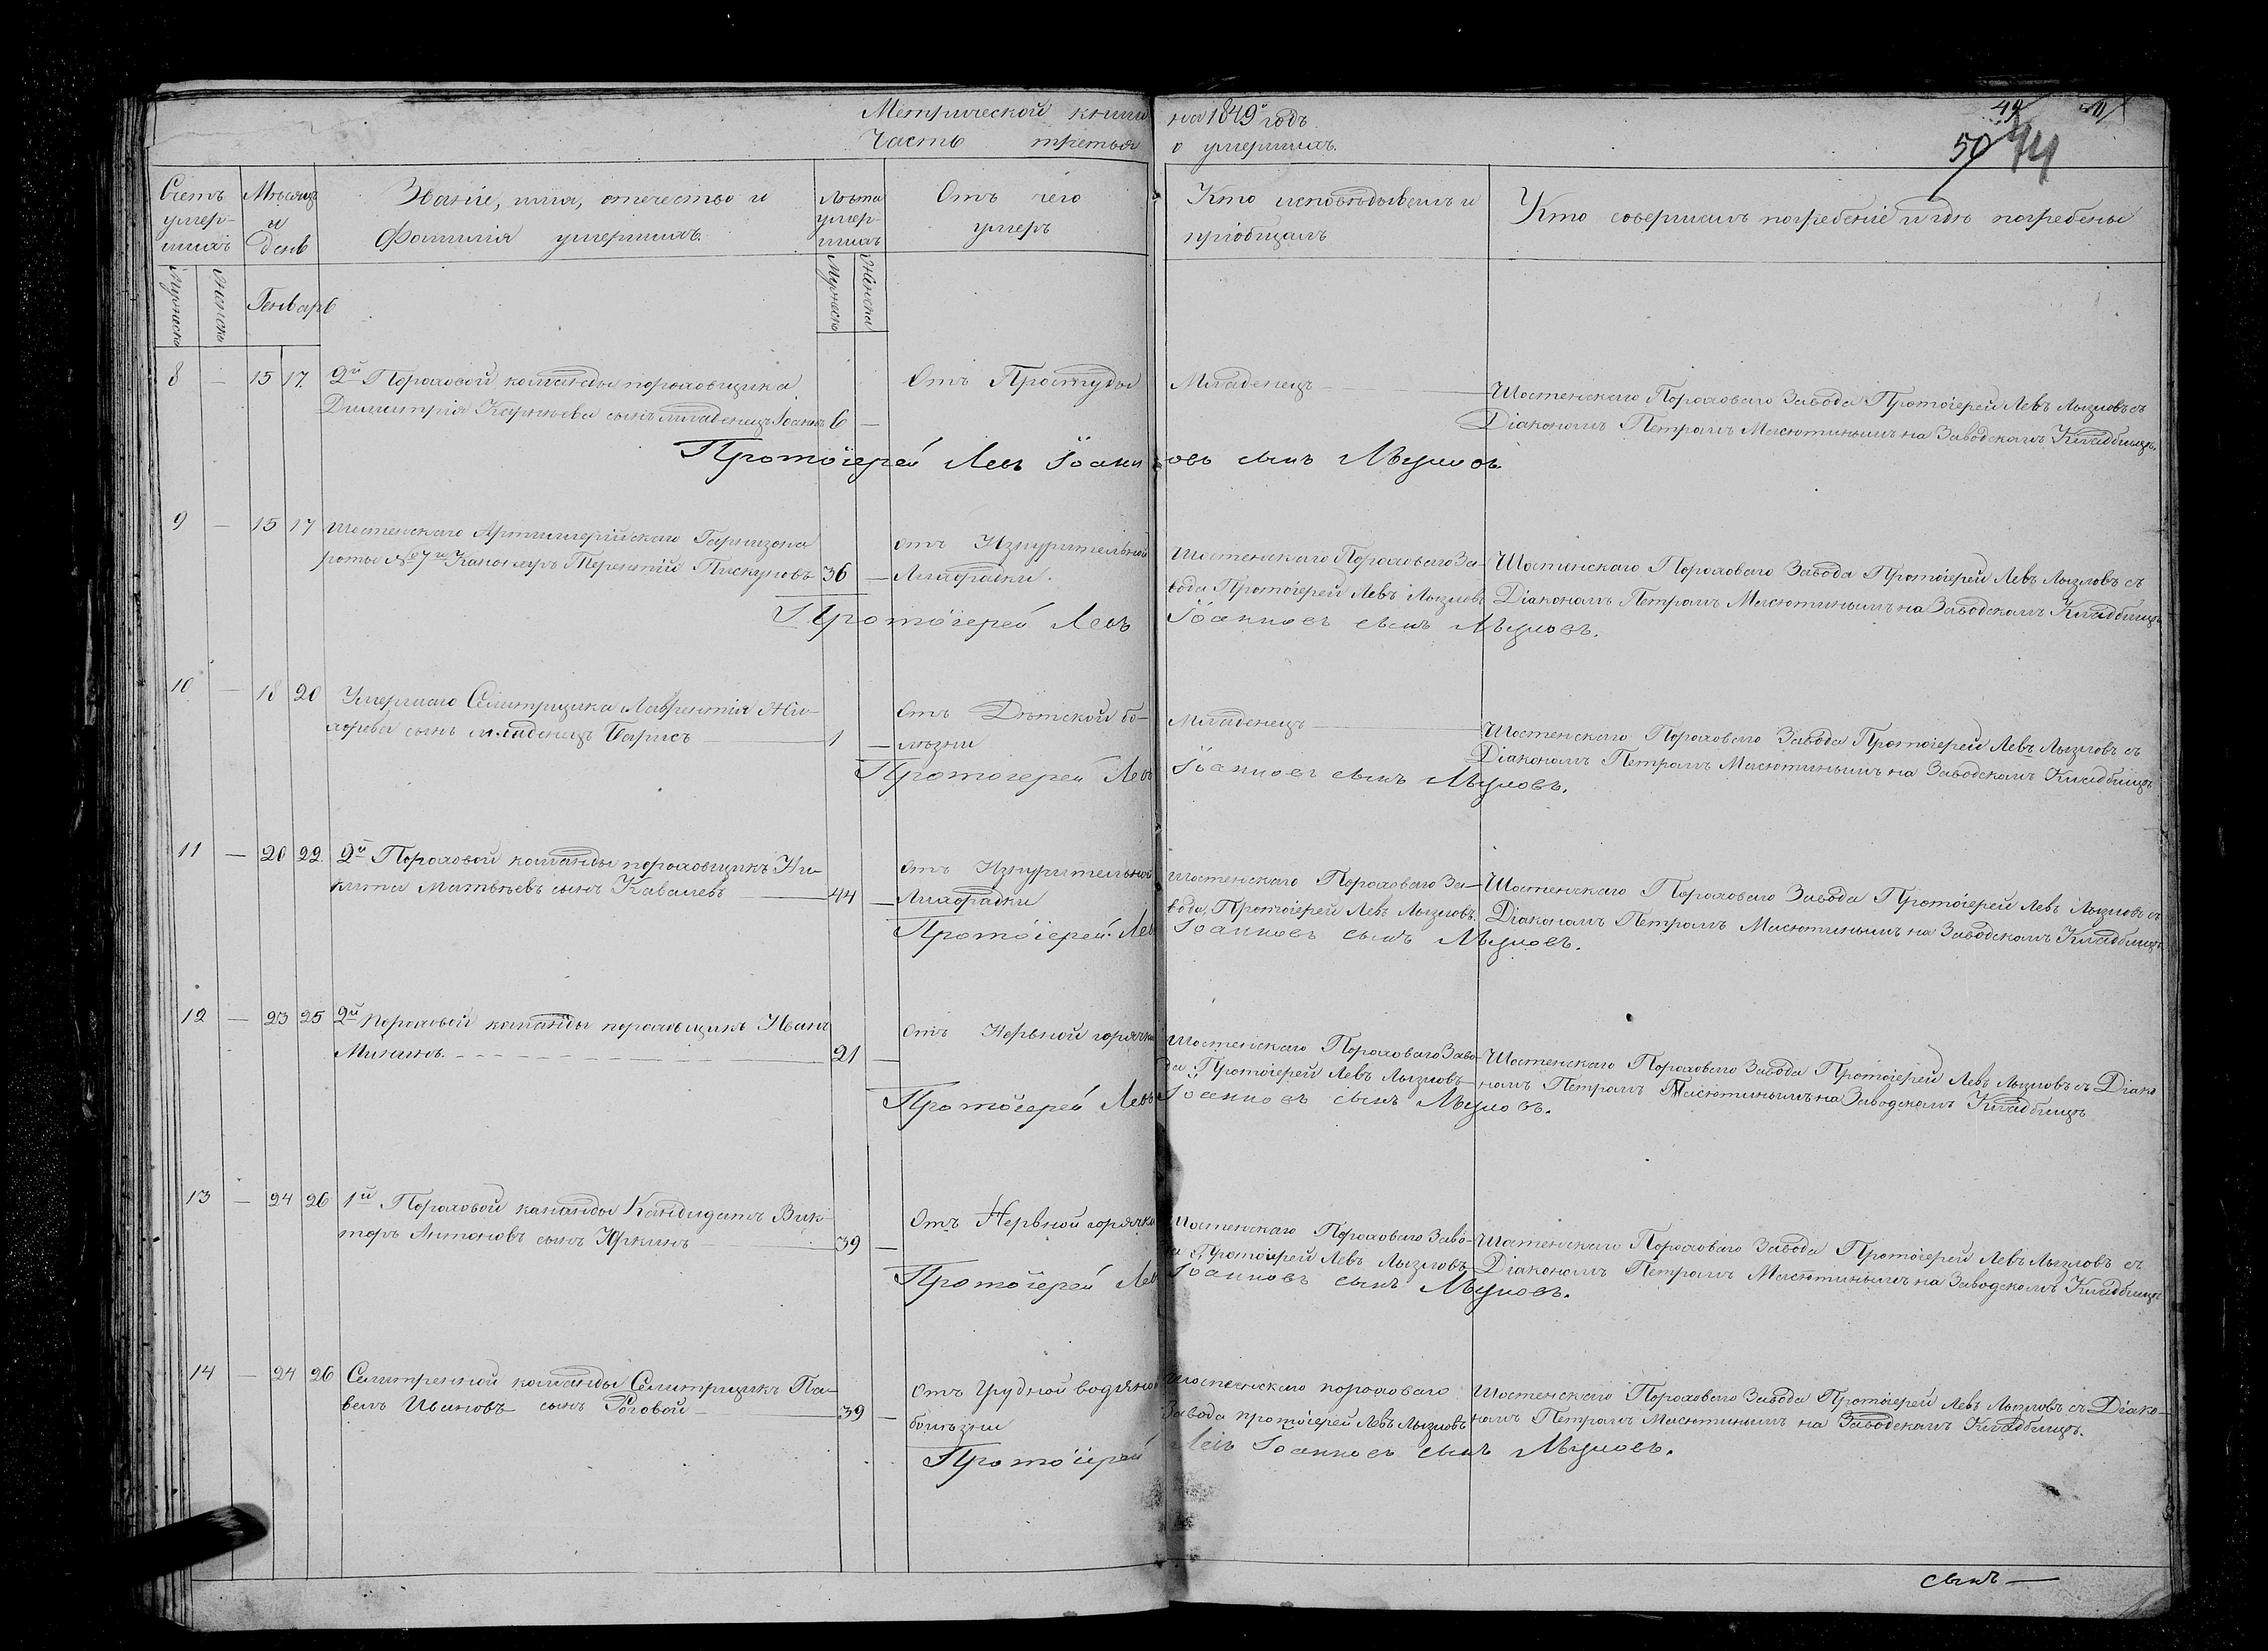 Метрической книги на 1849й годъ
Часть третья о умершихъ.
49
50 74
Счетъ умер-шихъ
Мѣсяцъ и день
Званіе, имя, отечество и фамилія умершихъ.
Лѣта умер-шихъ
Отъ чего умеръ
Кто исповѣдывалъ и пріобщалъ
Кто совершалъ погребеніе и гдѣ погребены
Мужеска
Женска
Генварь
Мужеска
Женска
8 — 15 17. 2й Пороховой команды пороховщика
Димитрія Карнѣева сынъ младенецъ Іоаннъ 6 —
Отъ Простуды
Младенецъ
Шостенскаго Пороховаго Завода Протоіерей Левъ Лызловъ съ
Діакономъ Петромъ Масютинымъ на Заводскомъ Кладбищѣ.
Протоіерей Левъ Іоанновъ сынъ Лызловъ
9 — 15 17 Шостенскаго Артиллерійскаго Гарнизона
роты №7й Канонеръ Терентій Пискуновъ 36 —
отъ Изнурительной
Лихорадки.
Шостенскаго Пороховаго За-
вода Протоіерей Левъ Лызловъ
Шостинскаго Пороховаго Завода Протоіерей Левъ Лызловъ съ
Діакономъ Петромъ Масютинымъ на Заводскомъ Кладбищѣ
Протоіерей Левъ Іоанновъ сынъ Лызловъ.
10 — 18 20 Умершаго Селитрщика Лаврентія
сынъ младенецъ Борисъ 1 —
Отъ Дѣтской бо-
лѣзни
Младенецъ
Шостенскаго Пороховаго Завода Протоіерей Левъ Лызловъ съ
Діакономъ Петромъ Масютинымъ на Заводскомъ Кладбищѣ
Протоіерей Левъ Іоанновъ сынъ Лызловъ.
11 — 20 22 2й Пороховой команды пороховщикъ Ни-
кита Матвѣевъ сынъ Ковалевъ 44 —
Отъ Изнурительной
Лихорадки
Шостенскаго Пороховаго За-
вода, Протоіерей Левъ Лызловъ
Шостенскаго Пороховаго Завода Протоіерей Левъ Лызловъ съ
Діакономъ Петромъ Масютинымъ на Заводскомъ Кладбищѣ
Протоіерей Левъ Іоанновъ сынъ Лызловъ.
12 — 23 25 2й Пороховой команды пороховщикъ Иванъ
Мининъ. 21 —
Отъ Нервной горячки
Шостенскаго Пороховаго Заво-
да Протоіерей Левъ Лызловъ
Шостенскаго Пороховаго Завода Протоіерей Левъ Лызловъ съ Діако
номъ Петромъ Масютинымъ на Заводскомъ Кладбищѣ
Протоіерей Левъ Іоанновъ сынъ Лызловъ.
13 — 24 26 1й Пороховой команды Кандидатъ Вик-
торъ Антоновъ сынъ Юркинъ 39 —
Отъ Нервной горячки
Шостенскаго Пороховаго Заво-
да Протоіерей Левъ Лызловъ
Шостенскаго Пороховаго Завода Протоіерей Левъ Лызловъ съ
Діакономъ Петромъ Масютинымъ на Заводскомъ Кладбищѣ
Протоіерей Левъ Іоанновъ сынъ Лызловъ.
14 — 24 26 Селитренной команды Селитрщикъ Па-
велъ Ивановъ сынъ Роговой 39 —
Отъ Грудной водяной
болѣзни
Шостенскаго пороховаго
Завода протоіерей Левъ Лызловъ
Шостенскаго Пороховаго Завода Протоіерей Левъ Лызловъ съ Діако-
номъ Петромъ Масютинымъ на Заводскомъ Кладбищѣ.
Протоіерей Левъ Іоанновъ сынъ Лызловъ.
сынъ —